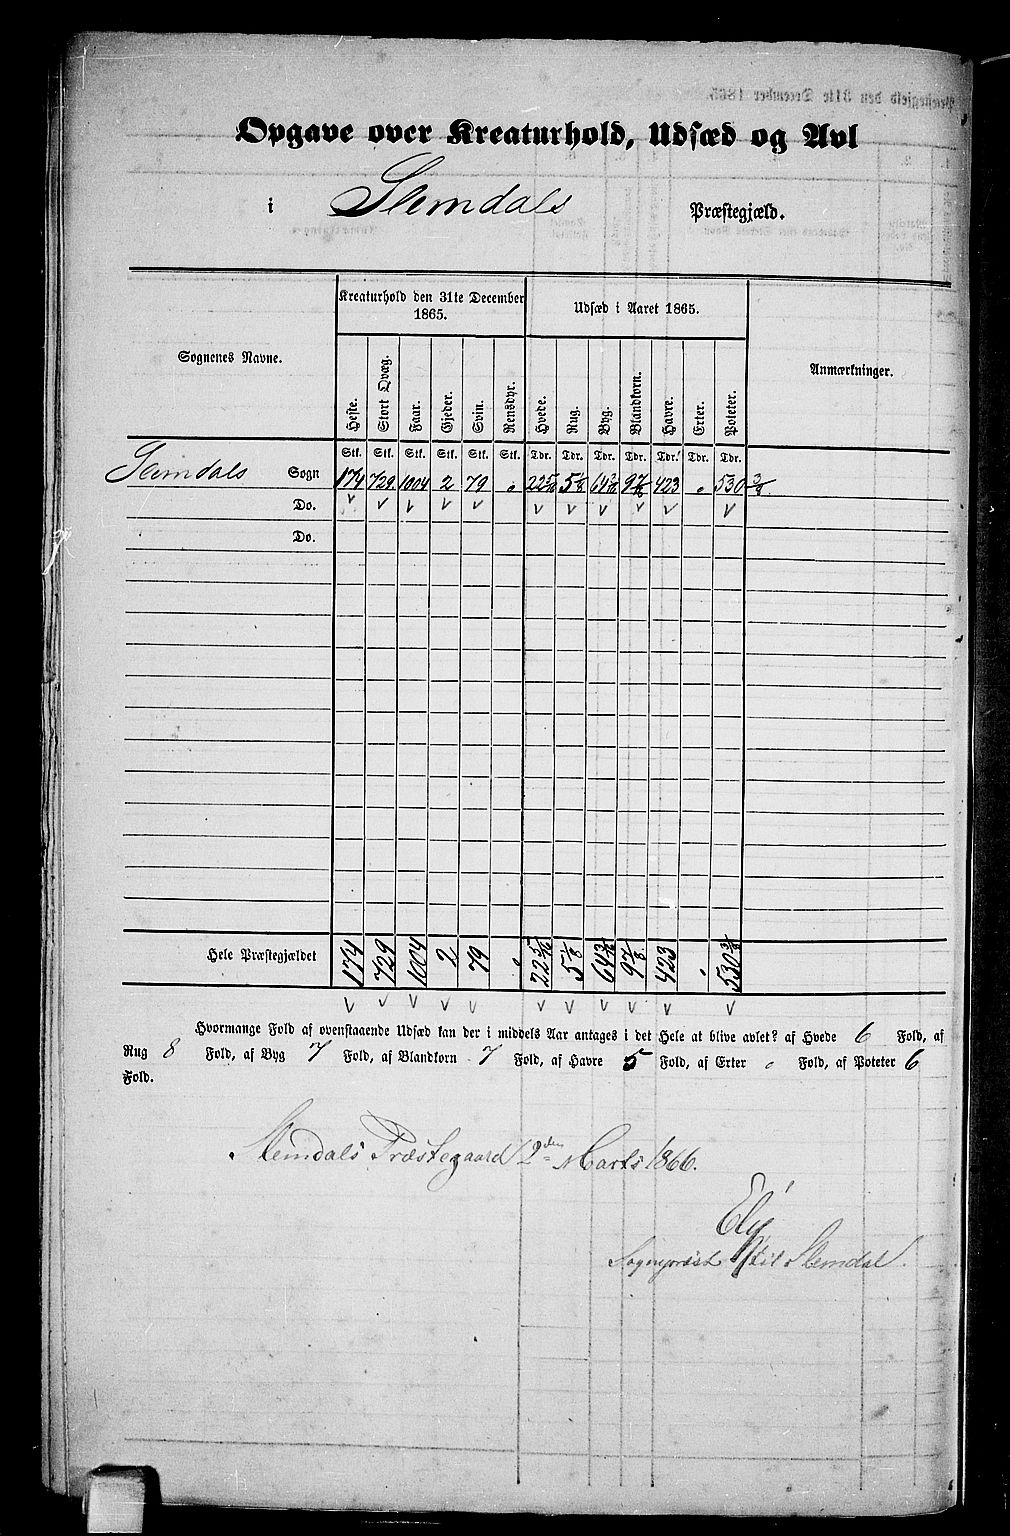 Opgave over Kreaturhold, Udsæd og Avl
i Slemdals Præstegjæld.
Sognenes Navne.
Kreaturhold den 31te December 1865.
Udsæd i Aaret 1865.
Anmærkninger.
Heste. Stort Qvæg. Faar. Gjeder. Svin. Rensdyr. Hvede. Rug. Byg. Blandkorn. Havre. Erter. Poteter.
Stk. Stk. Stk. Stk. Stk. Stk. Tdr. Tdr. Tdr. Tdr. Tdr. Tdr. Tdr.
Slemdals Sogn 174 729. 1004 2 79 " 5 1/8 423 " 530 3/8
Do.
Do.
Hele Præstegjældet 174 729 1004 2 79 " 22 5/16 5 1/8 97/8 423 " 530 3/8
Hvormange Fold af ovenstaaende Udsæd kan der i middels Aar antages i det Hele at blive avlet? af Hvede 6 Fold, af
Rug 8 Fold, af Byg 7 Fold, af Blandkorn 7 Fold, af Havre 5 Fold, af Erter " Fold, af Poteter 6
Fold.
Slemdals Præstegaard 12den Marts 1866.
Ely
Sognepræst til Slemdal.